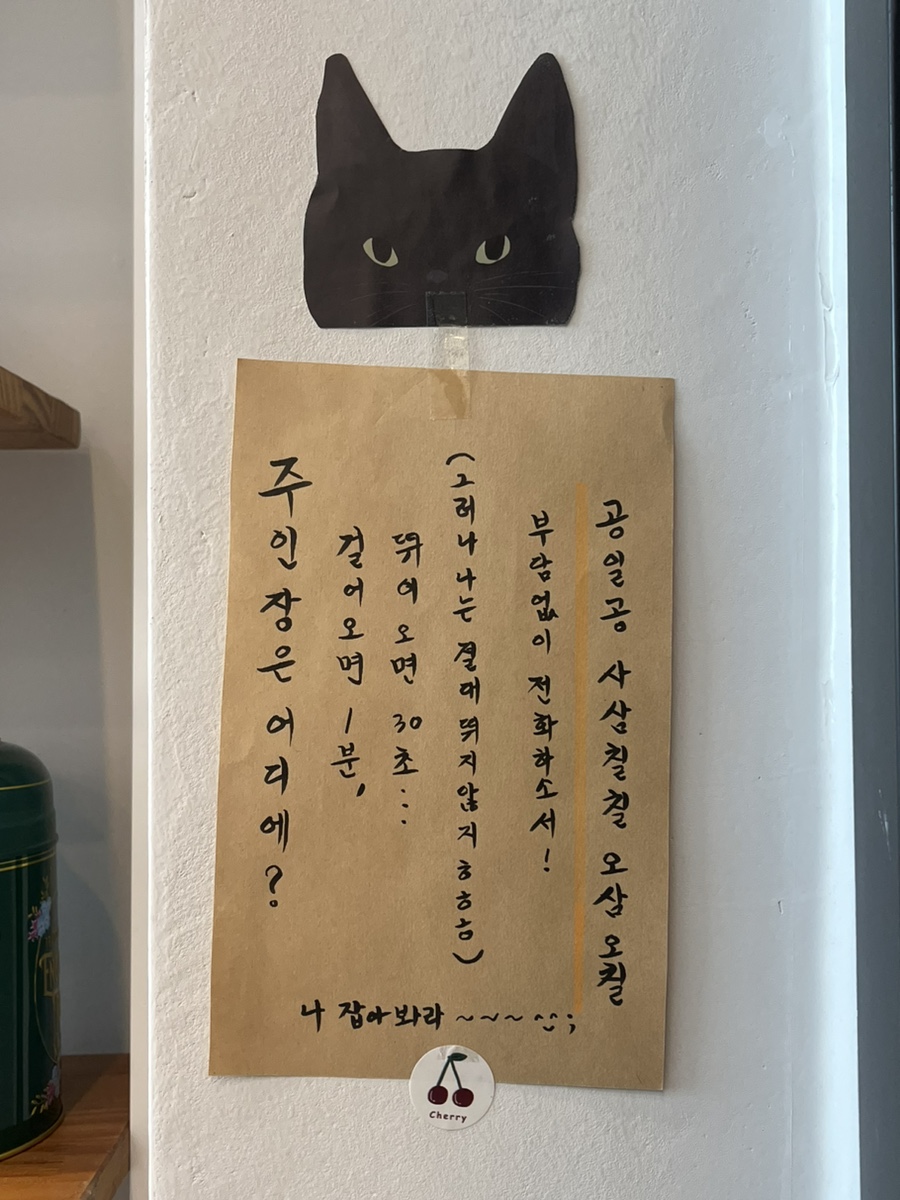 주인장은 어디에?
걸어오면 1분,
뛰어오면 30초...
(그러나 나는 절대 뛰지 않지 ㅎㅎ)
부담없이 전화하소서!
공일공 사삼칠칠 오삼오칠
나 잡아봐라 ~~~ ^^;
Cherry